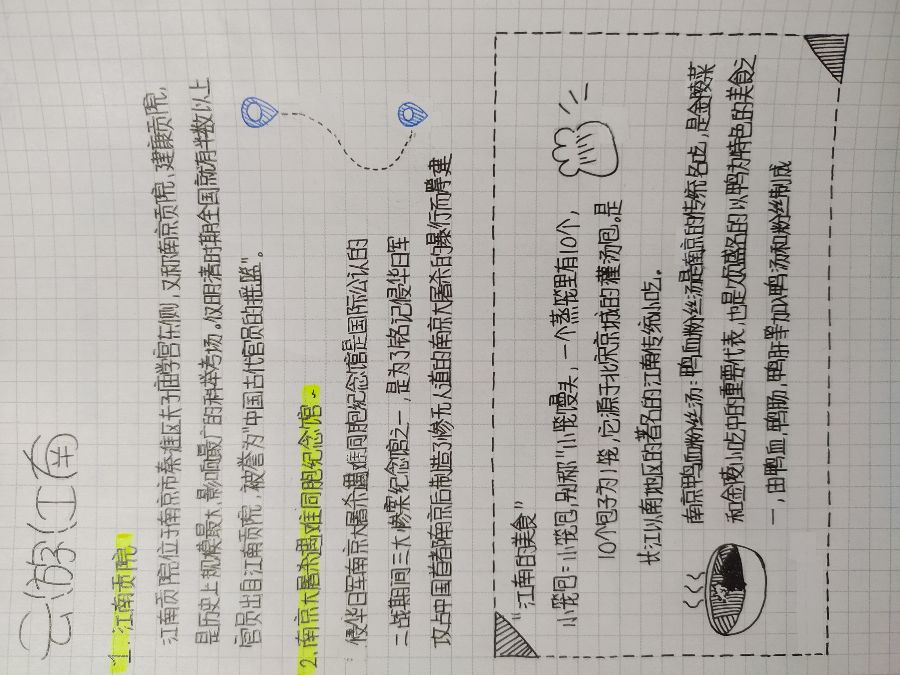 云游江南
1.江南贡院
江南贡院位于南京市秦淮区夫子庙学宫东侧,又称南京贡院,建康贡院,
是历史上规模最大,影响最广的科举考场。仅明清时期全国就有半数以上
官员出自江南贡院,被誉为"中国古代官员的摇篮"。
2.南京大屠杀遇难同胞纪念馆。
侵华日军南京大屠杀遇难同胞纪念馆是国际公认的
二战期间三大惨案纪念馆之一,是为了铭记侵华日军
攻占中国首都南京后制造了惨无人道的南京大屠杀的暴行而筹建
"江南的美食"
小笼包:小笼包,别称"小笼馒头,一个蒸笼里有10个,
10个包子为1笼,它源于北宋京城的灌汤包。是
长江以南地区的著名的江南传统小吃.
南京鸭血粉丝汤:鸭血粉丝汤是南京的传统名吃,是金陵菜
和金陵小吃中的重要代表,也是久负盛名的以鸭为特色的美食之
一,由鸭血,鸭肠,鸭肝等加入鸭汤和粉丝制成